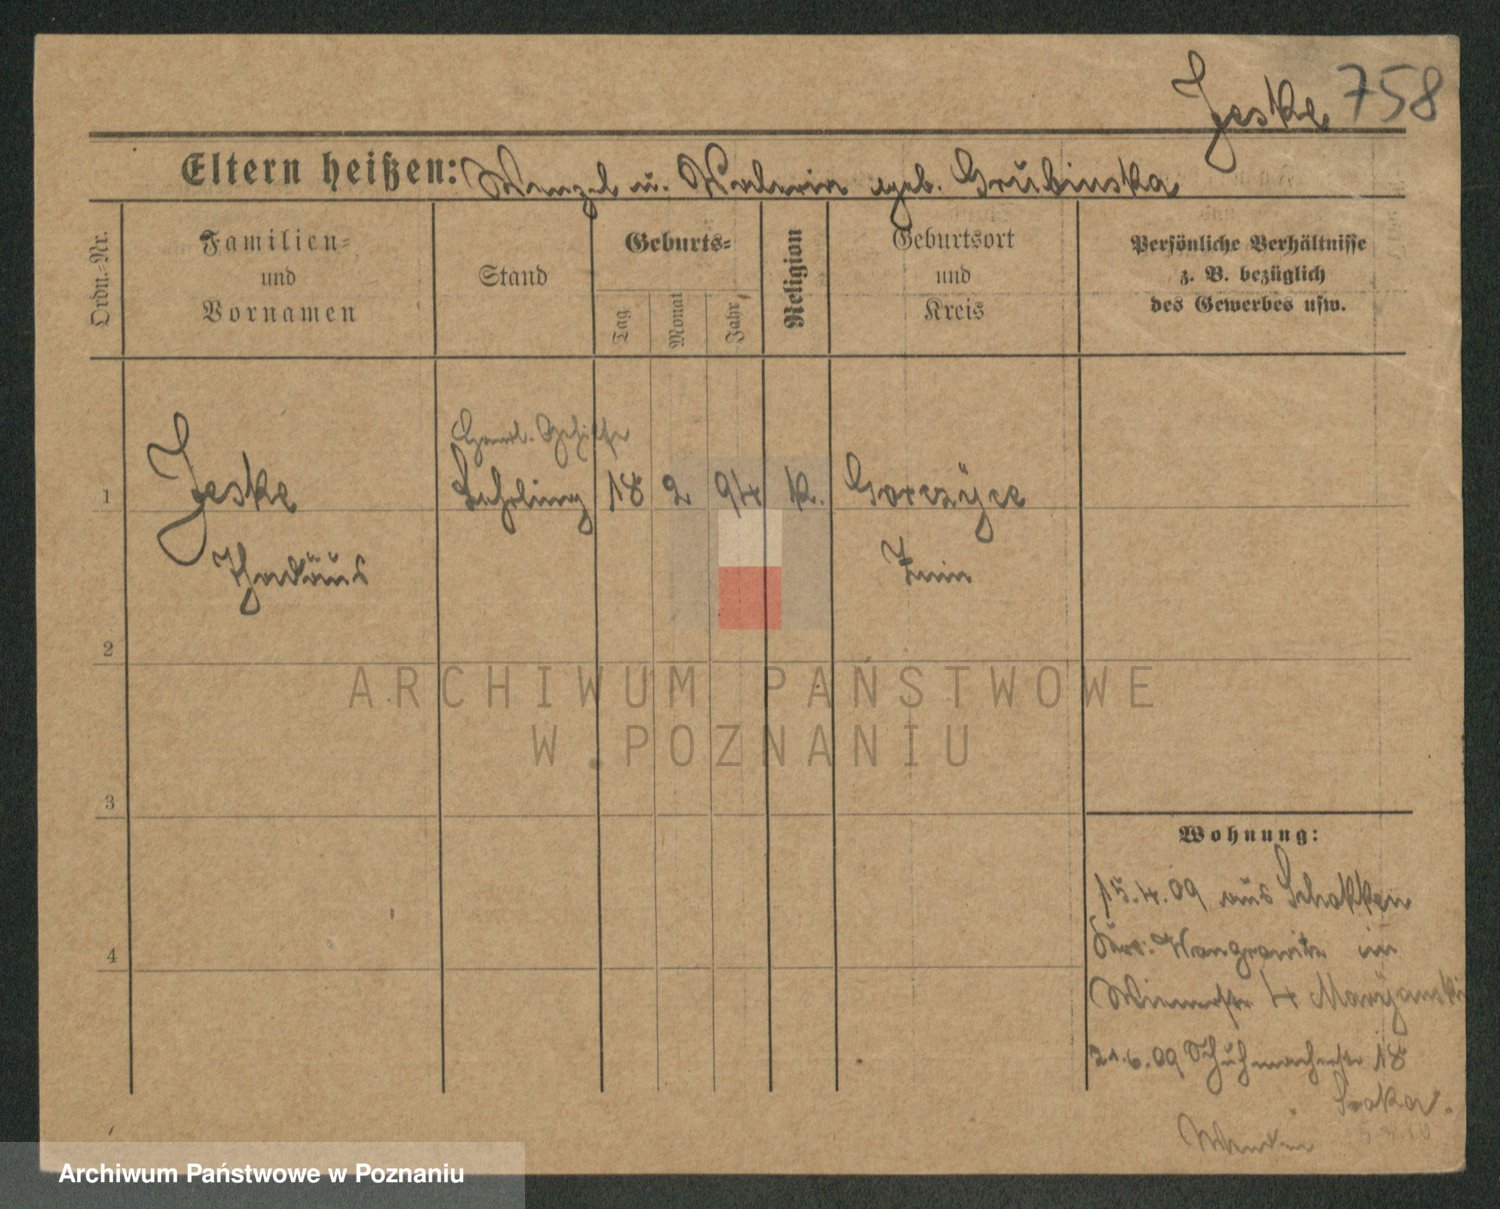 Jeske 758
Eltern heißen: Wenzel u. Valeria geb. Grubinska
Ordn.-Nr.
Familien-
und
Vornamen
Stand
Geburts-
Tag
Monat
Jahr
Religion
Geburtsort
und
Kreis
Persönliche Verhältnisse
z. B. bezüglich
des Gewerbes usw.
Handl. Gehilfe
1 Jeske Lehrling 18 2 94 k. Gorczyce
Thadäus Znin
2
ARCHIWUM PAŃSTWOWE
W POZNANIU
3
Wohnung:
15.4.09 aus Schokken
4
Kr: Wongrowitz in
Wienerstr 4 Maryanski
21.6.09 Schuhmacherstr 18
Archiwum Państwowe w Poznaniu